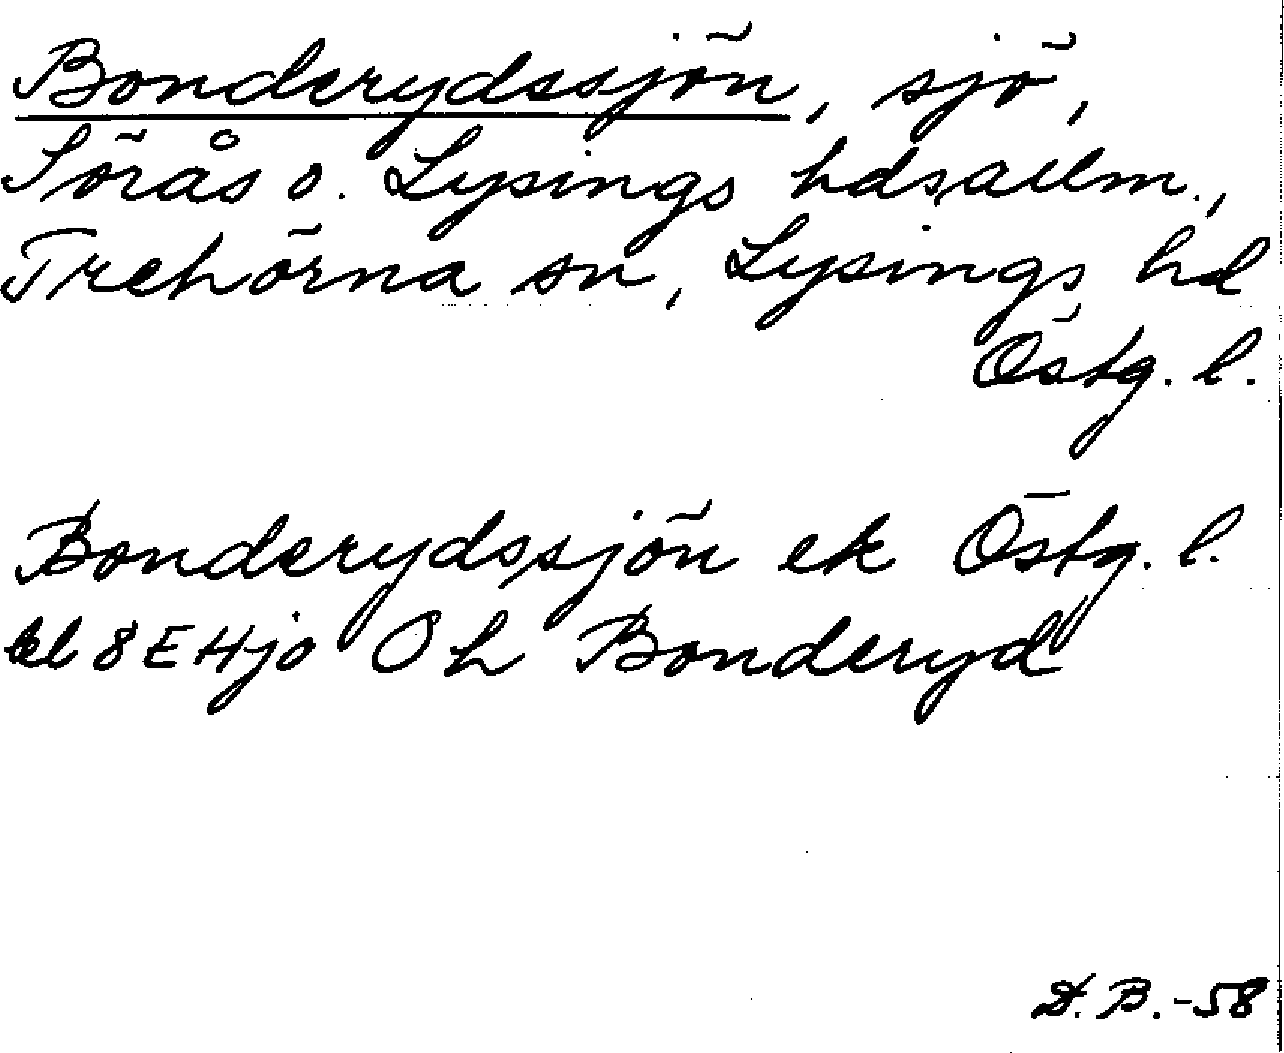 Bonderydssjön, sjö,
Sörås o. Lysings hdsallm.,
Trehörna sn, Lysings hd
Östg. l.
Bonderydssjön ek Östg. l.
bl 8 E Hjo Öh Bonderyd
D. B. -58